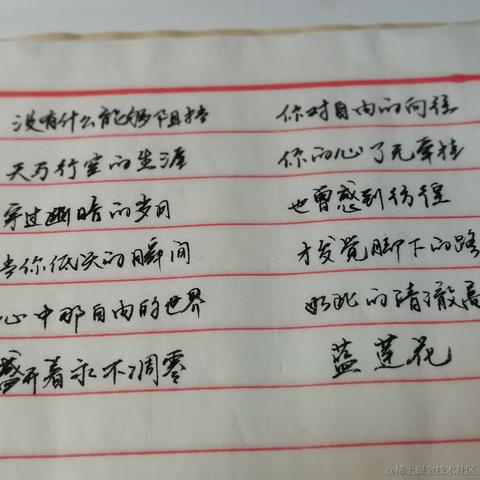 没有什么能够阻挡 你对自由的向往
天马行空的生涯 你的心了无牵挂
穿过幽暗的岁月 也曾感到彷徨
当你低头的瞬间 才发觉脚下的路
心中那自由的世界 如此的清澈高
盛开着永不凋零 蓝莲花
@稀土掘金技术社区